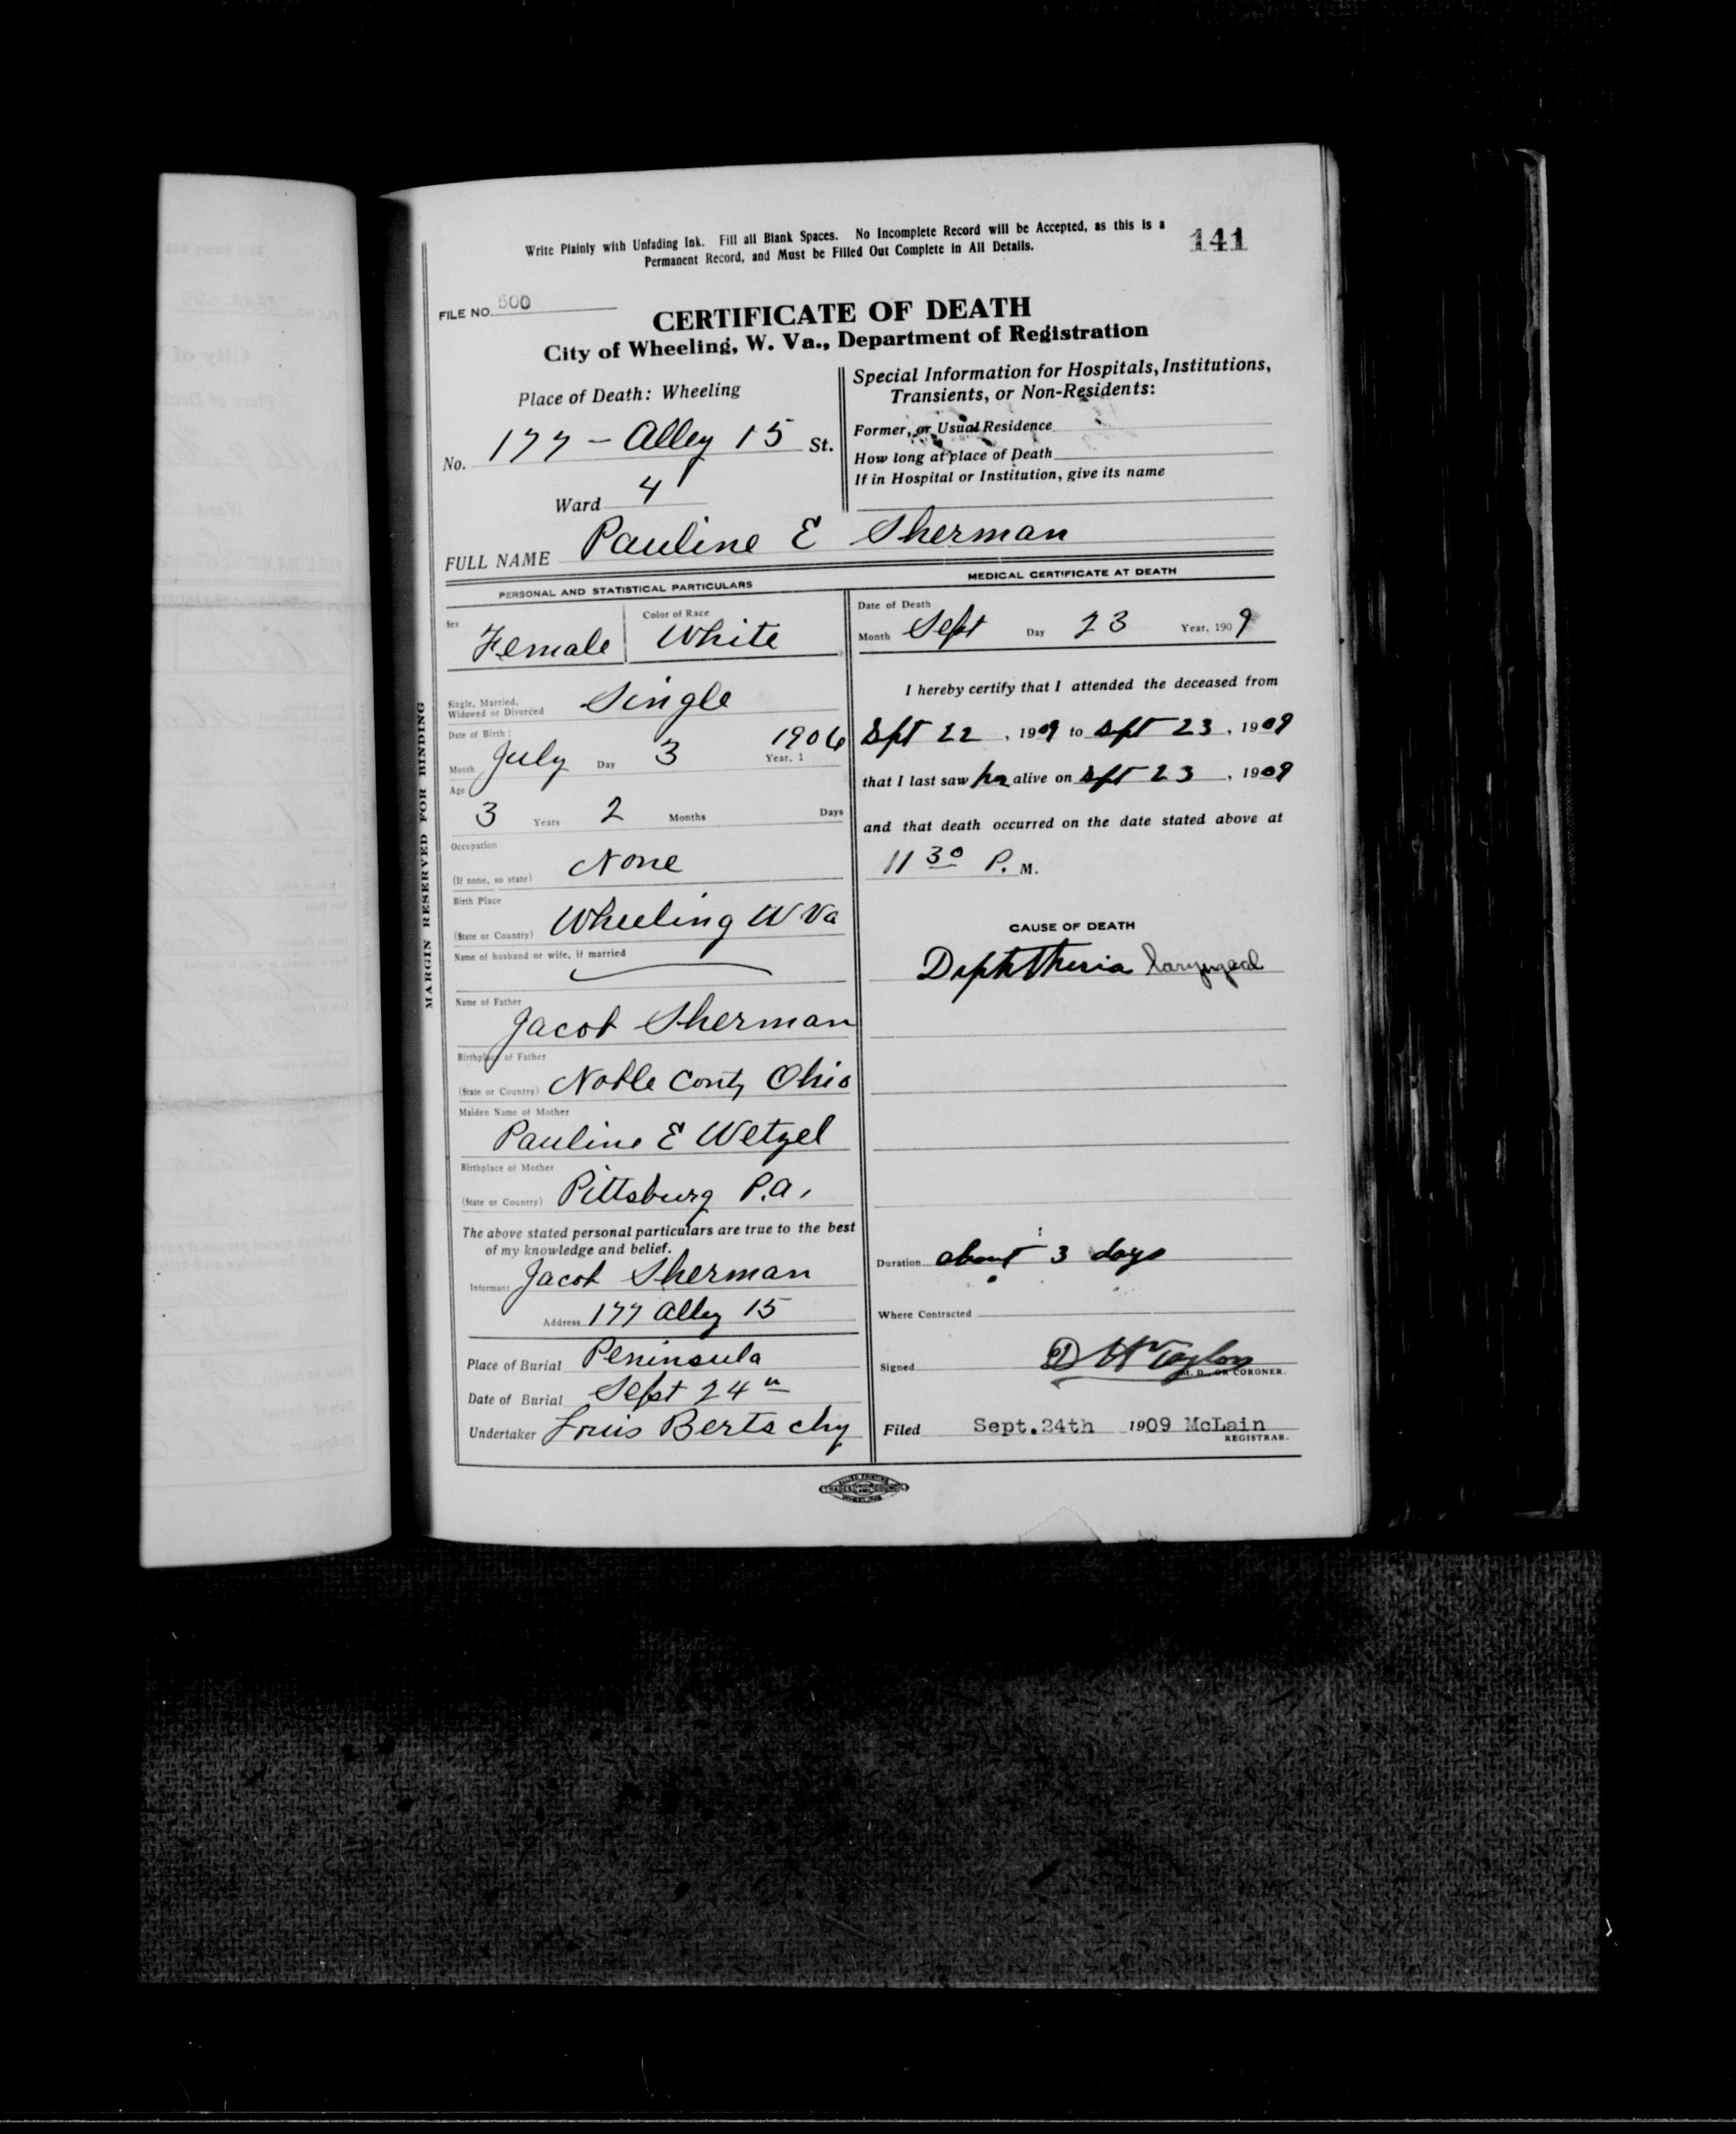 Write Plainly with Unfading Ink. Fill all Blank Spaces. No Incomplete Record will be Accepted, as this is a
Permanent Record, and Must be Filled Out Complete in All Details.
141
FILE NO. 500
CERTIFICATE OF DEATH
City of Wheeling, W. Va., Department of Registration
Place of Death: Wheeling
No. 177 - Alley 15 St.
Ward 4
Special Information for Hospitals, Institutions,
Transients, or Non-Residents:
Former, or Usual Residence
How long at place of Death
If in Hospital or Institution, give its name
FULL NAME Pauline E Sherman
MARGIN RESERVED FOR BINDING
PERSONAL AND STATISTICAL PARTICULARS
Sex Female
Color of Race White
Single, Married,
Widowed or Divorced Single
Date of Birth:
Month July Day 3 Year, 1 1906
Age
3 Years 2 Months Days
Occupation
(If none, so state) None
Birth Place
(State or Country) Wheeling W Va
Name of husband or wife, if married
Name of Father
Jacob Sherman
Birthplace of Father
(State or Country) Noble Conty Ohio
Maiden Name of Mother
Pauline E Wetzel
Birthplace of Mother
(State or Country) Pittsburg P.a.
The above stated personal particulars are true to the best
of my knowledge and belief.
Informant Jacob Sherman
Address 177 Alley 15
Place of Burial Peninsula
Date of Burial Sept 24"
Undertaker Louis Bertschy
MEDICAL CERTIFICATE AT DEATH
Date of Death
Month Sept Day 23 Year, 1909
I hereby certify that I attended the deceased from
Spt 22, 1909 to Spt 23, 1909
that I last saw her alive on Spt 23, 1909
and that death occurred on the date stated above at
11 30 P. M.
CAUSE OF DEATH
Diphtheria laryngeal
Duration about 3 days
Where Contracted
Signed D H Taylor
M. D., OR CORONER.
Filed Sept.24th 1909 McLain
REGISTRAR.
ALLIED PRINTING
TRADES COUNCIL
WHEELING